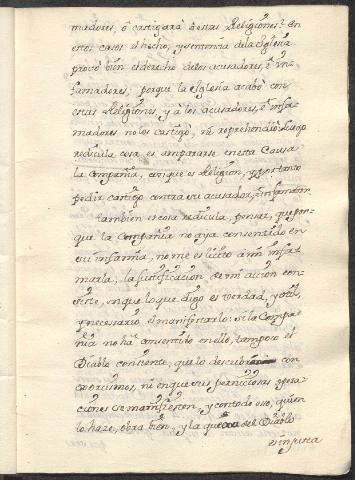 madores, ô castigarà à estas Religiones? en
estos casos el hecho, y sentencia dela Iglesia
provò bien el derecho delos acusadores, ê in-
famadores; porque la Iglesia acabò con
estas Religiones, y à los acusadores, ê infa-
madores no los castigò, ni reprehendiò. Luego
redicula cosa es ampararse en esta Causa
la Compañia, con que es Religion, y por tanto
pedir castigo contra su acusador, ê infamador.
Tambien es cosa redicula, pensar, que por-
que la Compañia no aya consentido en
su infamia, no me es licito à mi infa-
marla; la justificacion de mi accion con-
siste, en que lo que digo es verdad, y util,
y necessario el manifestarlo: si la Compa-
ñia no ha consentido en ello, tampoco el
Diablo consiente, que lo descubran con
exorcismos, ni en que sus perniciosas opera-
ciones se manifiesten, y con todo esso, quien
lo haze, obra bien, y la quexa del Diablo
es injusta